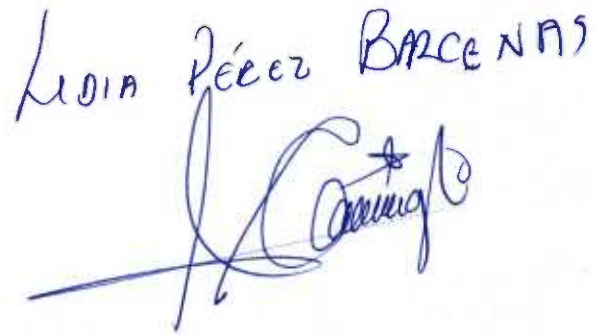 LIDIA PÉREZ BARCENAS